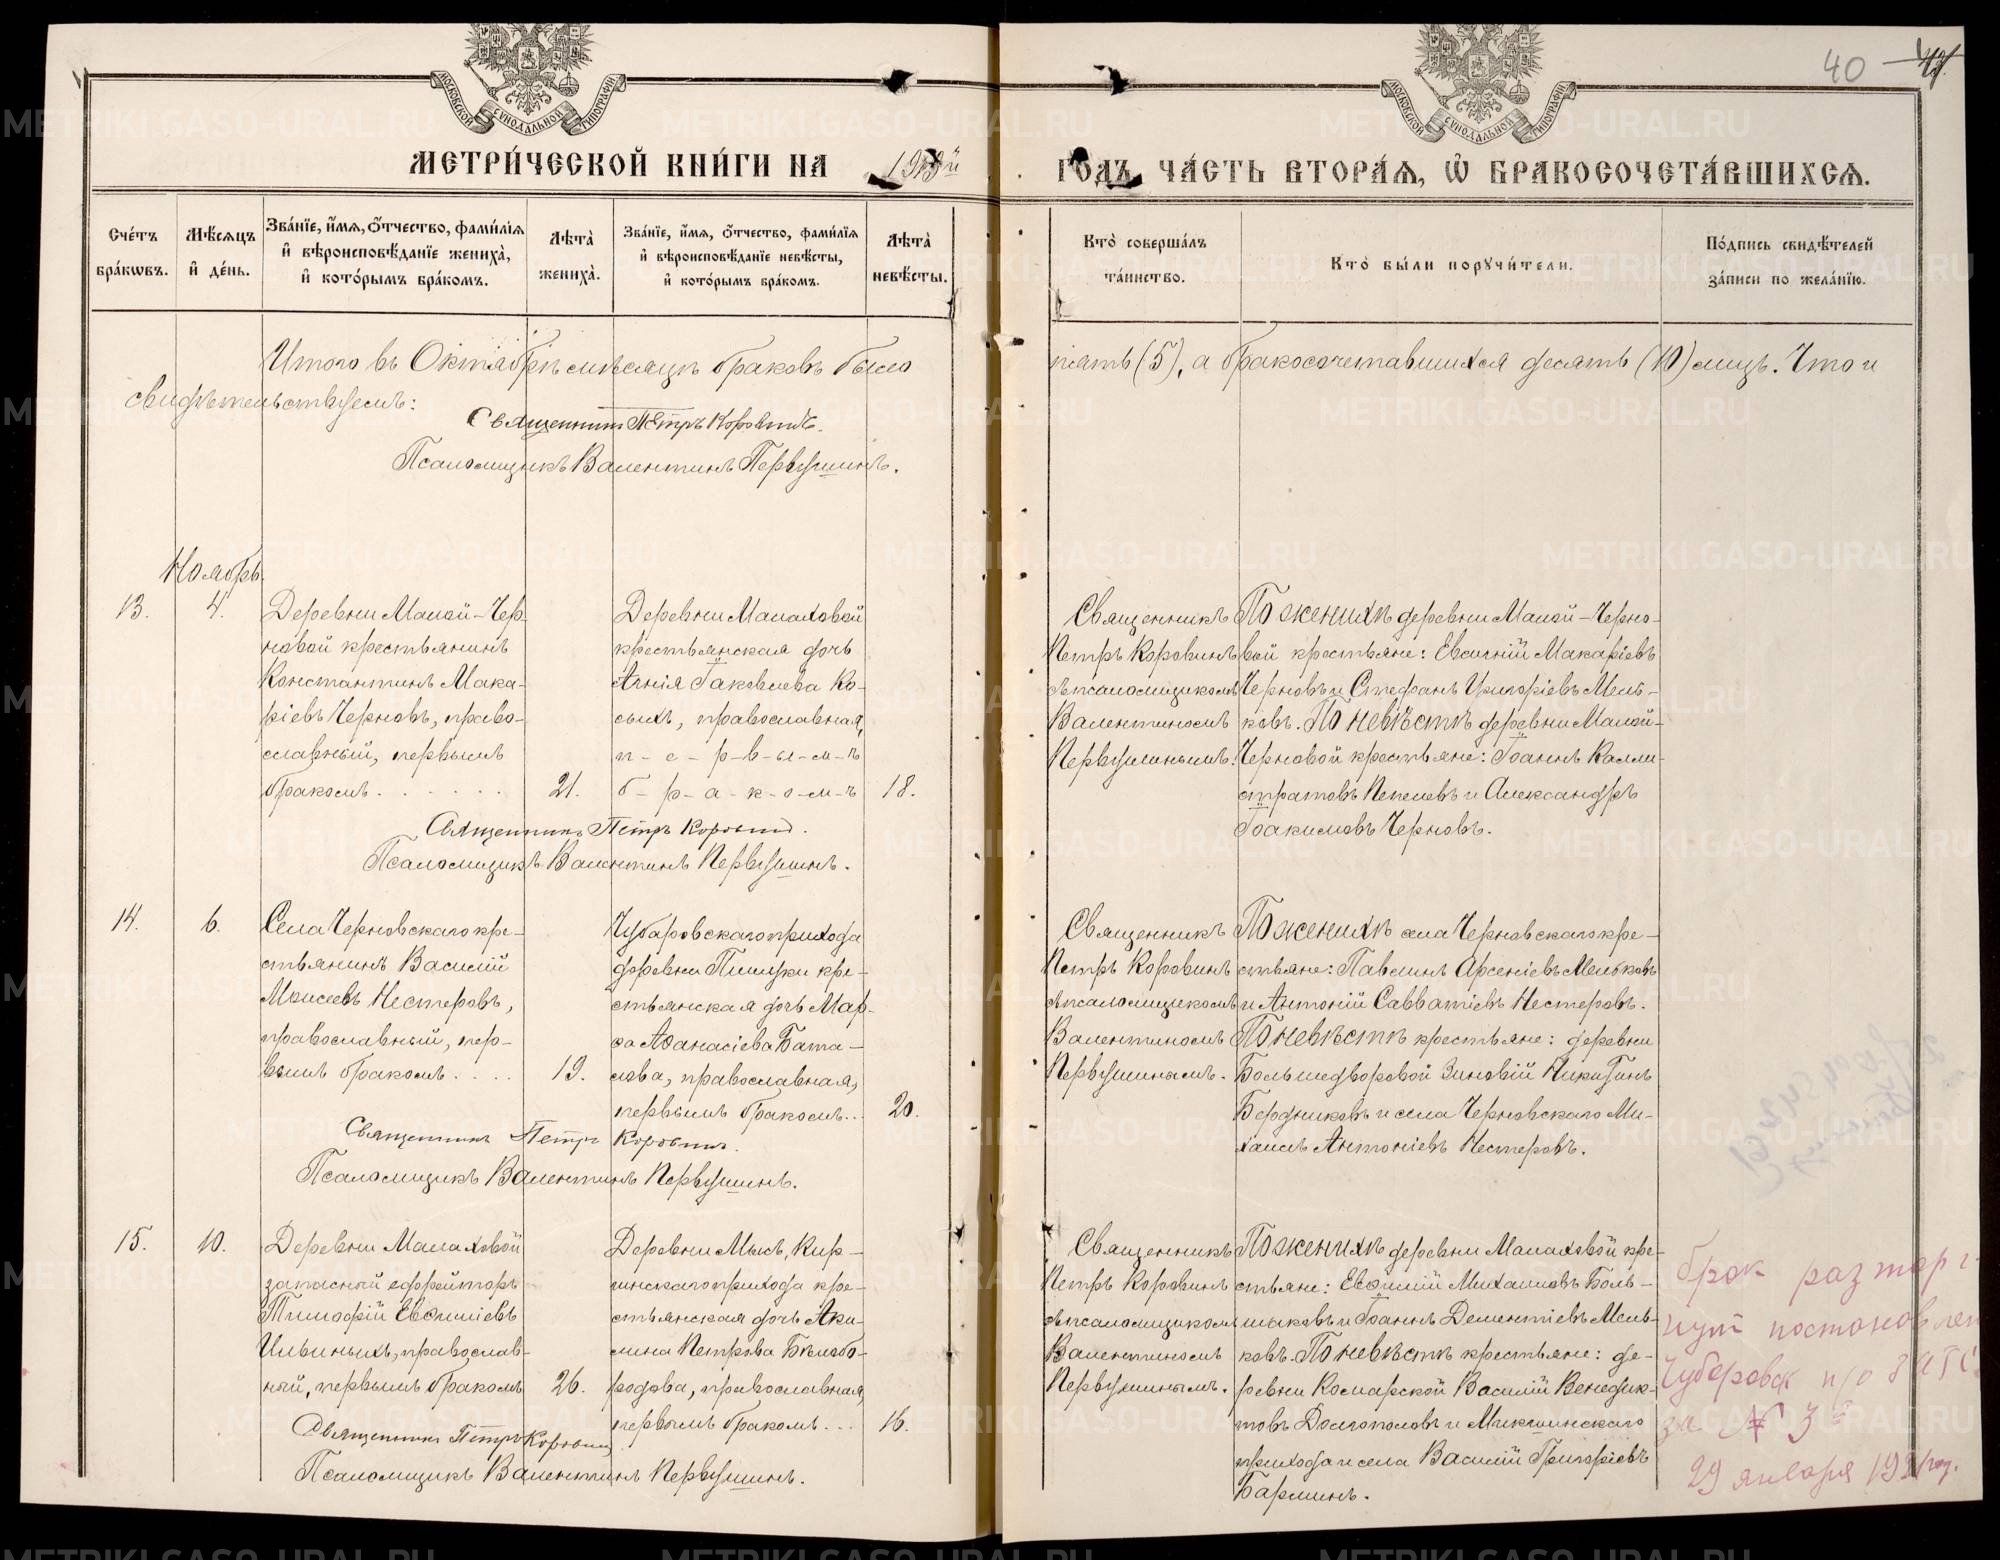 40
МОСКОВСКОЙ СѴНОДАЛЬНОЙ ТИПОГРАФІИ
МОСКОВСКОЙ СѴНОДАЛЬНОЙ ТИПОГРАФІИ
МЕТРИ́ЧЕСКОЙ КНИ́ГИ НА
ГОДЪ, ЧА́СТЬ ВТОРА́Ѧ, Ѿ БРАКОСОЧЕТА́ВШИХСѦ.
Сче́тъ бра́кѡвъ.
Мѣ́сѧцъ и҆ де́нь.
Зва́нїе, и҆́мѧ, ѻ҆́тчество, фами́лїѧ и҆ вѣроисповѣ́данїе жениха̀, и҆ кото́рымъ бра́комъ.
Лѣта̀ жениха̀.
Зва́нїе, и҆́мѧ, ѻ҆́тчество, фами́лїѧ и҆ вѣроисповѣ́данїе невѣ́сты, и҆ кото́рымъ бра́комъ.
Лѣта̀ невѣ́сты.
Кто̀ соверша́лъ та́инство.
Кто̀ бы́ли порꙋчи́тели.
По́дпись свидѣ́телей за́писи по жела́нїю.
Итого въ Октябрѣ мѣсяцѣ браковъ было пять (5), а бракосочетавшихся десять (10) лицъ. Что и
свидѣтельствуемъ:
Священникъ Петръ Коровинъ.
Псаломщикъ Валентинъ Первушинъ.
Ноябрь.
13.
4.
Деревни Малой-Чер-
новой крестьянинъ
Константинъ Мака-
ріевъ Черновъ, право-
славный, первымъ
бракомъ . . . . . .
21.
Деревни Малаховой
крестьянская дочь
Агнія Іаковлева Ко-
сыхъ, православная,
п-е-р-в-ы-м-ъ
б-р-а-к-о-м-ъ
18.
Священникъ
Петръ Коровинъ
съ псаломщикомъ
Валентиномъ
Первушинымъ.
По женихѣ деревни Малой-Черно-
вой крестьяне: Евѳимій Макаріевъ
Черновъ и Стефанъ Григоріевъ Мель-
ковъ. По невѣстѣ деревни Малой-
Черновой крестьяне: Іоаннъ Калли-
стратовъ Пепелевъ и Александръ
Іоакимовъ Черновъ.
Священникъ Петръ Коровинъ.
Псаломщикъ Валентинъ Первушинъ.
14.
6.
Села Черновскаго кре-
стьянинъ Василій
Моисеевъ Нестеровъ,
православный, пер-
вымъ бракомъ . . . .
19.
Чубаровскаго прихода
деревни
кре-
стьянская дочь Мар-
ѳа Аѳанасіева Бата-
лова, православная,
первымъ бракомъ . .
20.
Священникъ
Петръ Коровинъ
съ псаломщикомъ
Валентиномъ
Первушинымъ.
По женихѣ села Черновскаго кре-
стьяне: Павлинъ Арсеніевъ Мельковъ
и Антоній Савватіевъ Нестеровъ.
По невѣстѣ крестьяне: деревни
Большедворовой Зиновій Никитинъ
Бердниковъ и села Черновскаго Ми-
хаилъ Антоніевъ Нестеровъ.
Священникъ Петръ Коровинъ.
Псаломщикъ Валентинъ Первушинъ.
15.
10.
Деревни Малаховой
запасный ефрейторъ
Тимофій Евѳиміевъ
Ильиныхъ, православ-
ный, первымъ бракомъ
26.
Деревни Мысъ, Кир-
гинскаго прихода кре-
стьянская дочь Аки-
лина Петрова Бѣлобо-
родова, православная,
первымъ бракомъ . . .
16.
Священникъ
Петръ Коровинъ
съ псаломщикомъ
Валентиномъ
Первушинымъ.
По женихѣ деревни Малаховой кре-
стьяне: Евѳимій Михаиловъ Боль-
шаковъ и Іоаннъ Дементіевъ Мель-
ковъ. По невѣстѣ крестьяне: де-
ревни Комарской Василій Венедик-
товъ Долгополовъ и
прихода и села Василій Григоріевъ
Барминъ.
брак расторг-
нут постановлен
за № 3
29 января 1921 год.
Священникъ Петръ Коровинъ
Псаломщикъ Валентинъ Первушинъ.
METRIKI.GASO-URAL.RU